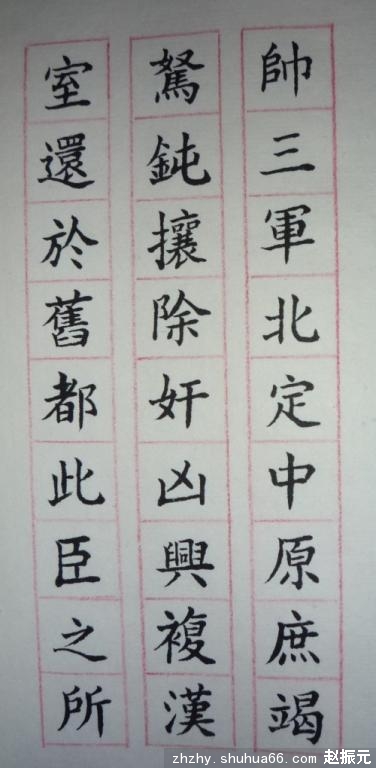 帥三軍北定中原庶竭
駑鈍攘除奸凶興複漢
室還於舊都此臣之所
zhzhy.shuhua66.com 赵振元